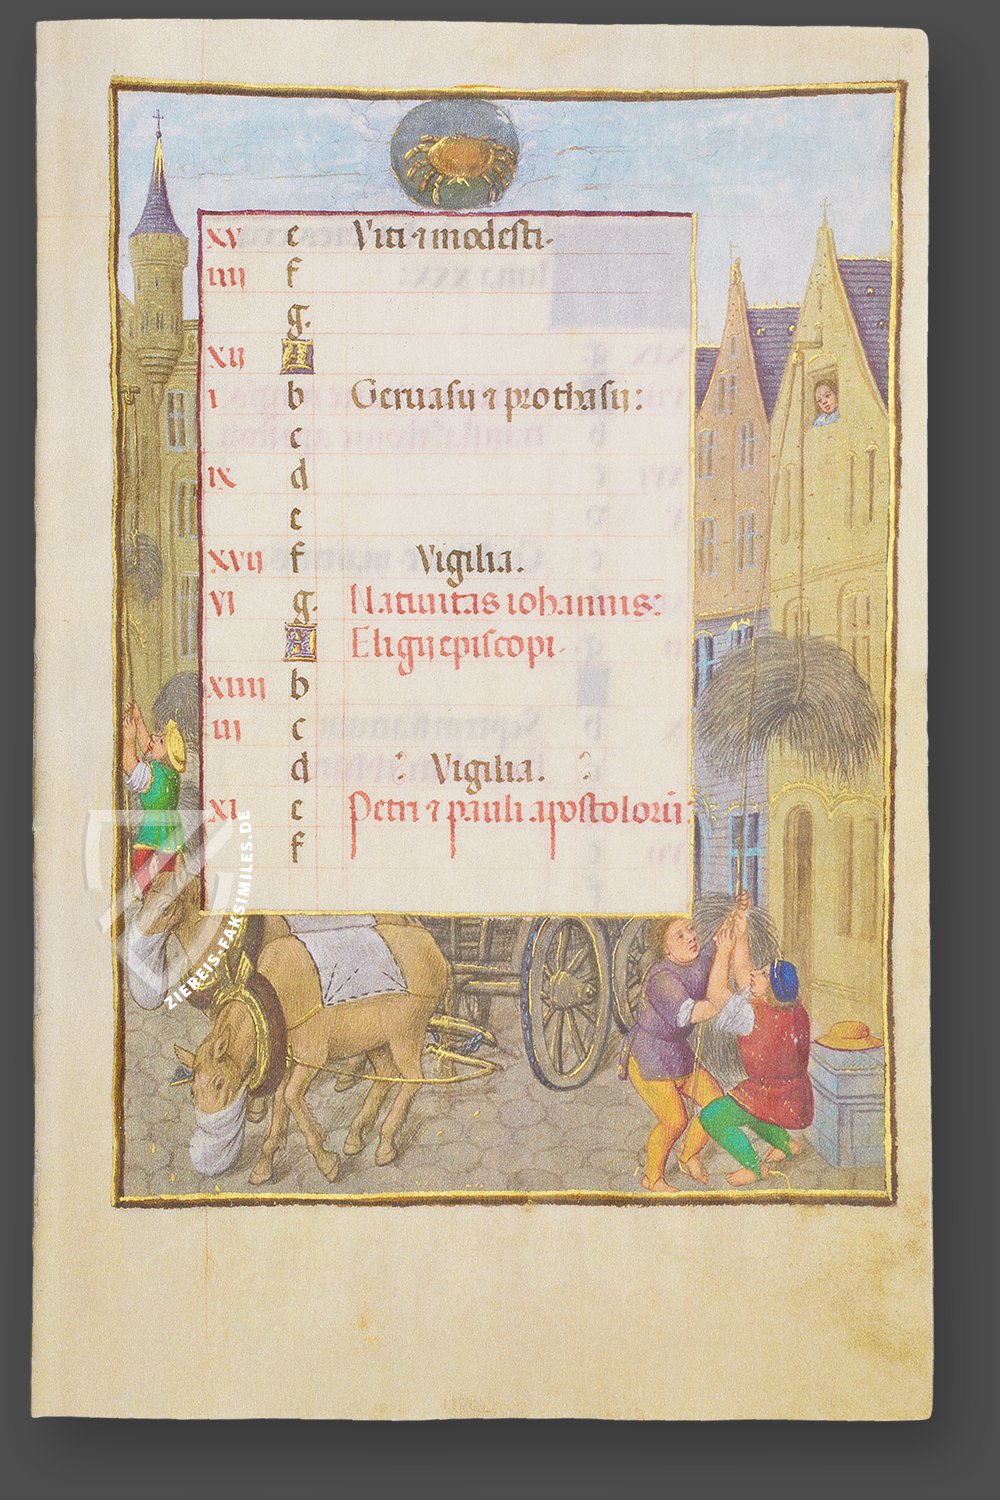 XV e Viti ⁊ modesti.
iiij f
g.
xij A
i b Geruasij ⁊ prothasij:
c
ix d
e
xvij f Vigilia.
vi g. Natiuitas iohannis:
A Eligij episcopi.
xiiij b
iij c
d Vigilia.
xi e Petri ⁊ pauli apostolorū:
f
ZIEREIS-FAKSIMILES.DE